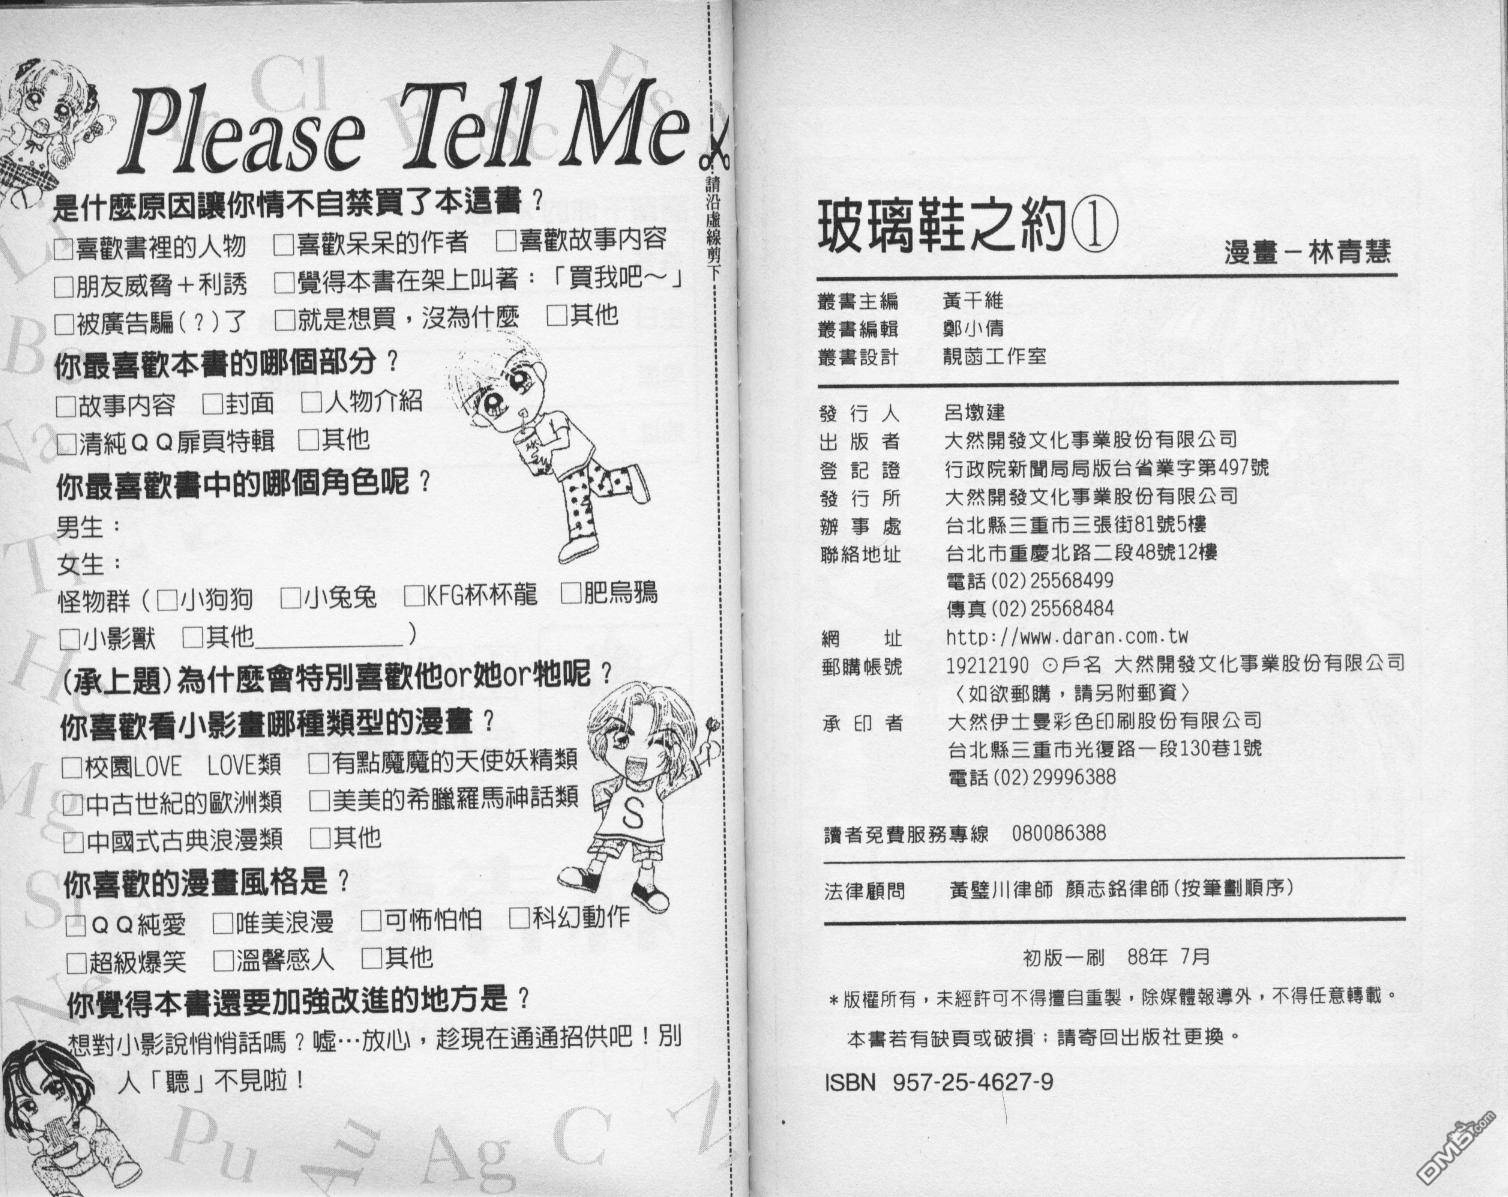 Please Tell Me
請沿虛線剪下
是什麼原因讓你情不自禁買了本這書？
□喜歡書裡的人物　□喜歡呆呆的作者　□喜歡故事内容
□朋友威脅＋利誘　□覺得本書在架上叫著：「買我吧～」
□被廣告騙(？)了　□就是想買，沒為什麼　□其他
你最喜歡本書的哪個部分？
□故事内容　□封面　□人物介紹
□清純ＱＱ扉頁特輯　□其他
你最喜歡書中的哪個角色呢？
男生：
女生：
怪物群（□小狗狗　□小兔兔　□KFG杯杯龍　□肥烏鴉
□小影獸　□其他＿＿＿＿＿＿）
(承上題)為什麼會特別喜歡他or她or牠呢？
你喜歡看小影畫哪種類型的漫畫？
□校園LOVE　LOVE類　□有點魔魔的天使妖精類
□中古世紀的歐洲類　□美美的希臘羅馬神話類
□中國式古典浪漫類　□其他
你喜歡的漫畫風格是？
□ＱＱ純愛　□唯美浪漫　□可怖怕怕　□科幻動作
□超級爆笑　□溫馨感人　□其他
你覺得本書還要加強改進的地方是？
想對小影說悄悄話嗎？噓…放心，趁現在通通招供吧！別
人「聽」不見啦！
Cl
Ar
Es
Sc
Li
Be
Na
Ti
Hg
Mg
Si
Ne
Pu
Au
Ag
C
Z
S
玻璃鞋之約①
漫畫－林青慧
叢書主編　黃千維
叢書編輯　鄭小倩
叢書設計　靚菡工作室
發行人　呂墩建
出版者　大然開發文化事業股份有限公司
登記證　行政院新聞局局版台省業字第497號
發行所　大然開發文化事業股份有限公司
辦事處　台北縣三重市三張街81號5樓
聯絡地址　台北市重慶北路二段48號12樓
電話(02)25568499
傳真(02)25568484
網址　http://www.daran.com.tw
郵購帳號　19212190 ⊙戶名 大然開發文化事業股份有限公司
〈如欲郵購，請另附郵資〉
承印者　大然伊士曼彩色印刷股份有限公司
台北縣三重市光復路一段130巷1號
電話(02)29996388
讀者免費服務專線　080086388
法律顧問　黃璧川律師 顏志銘律師(按筆劃順序)
初版一刷　88年 7月
＊版權所有，未經許可不得擅自重製，除媒體報導外，不得任意轉載。
本書若有缺頁或破損：請寄回出版社更換。
ISBN 957-25-4627-9
DM5.com